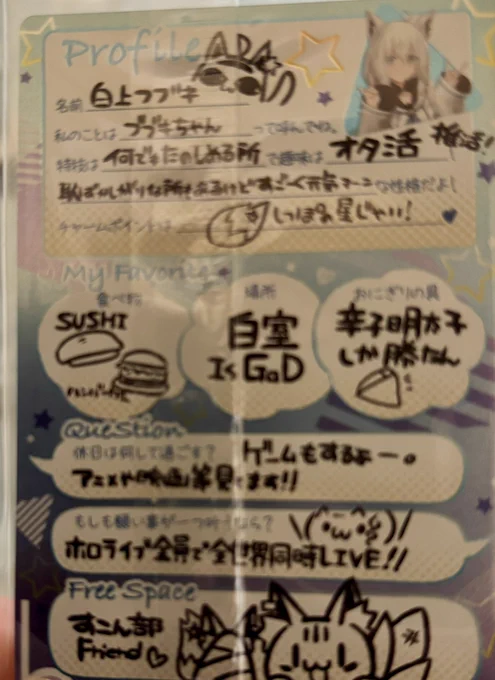 Profile
名前 白上フブキ
私のことは フブキちゃん って呼んでね。
特技は 何でもたのしめる所 で趣味は オタ活 推活!
恥ずかしがりな所もあるけどすごーく元気〜〜な性格だよ!
チャームポイントは しっぽの星じゃい!
My Favorite
食べ物
SUSHI
ハンバーガー
場所
自室
Is GoD
おにぎりの具
辛子明太子
しか勝たん
Question
休日は何して過ごす? ゲームもするよー。
アニメや映画等見てます!!
もしも願い事が一つ叶うなら? \(^・ω・^)/
ホロライブ全員で全世界同時LIVE!!
Free Space
すこん部
Friend